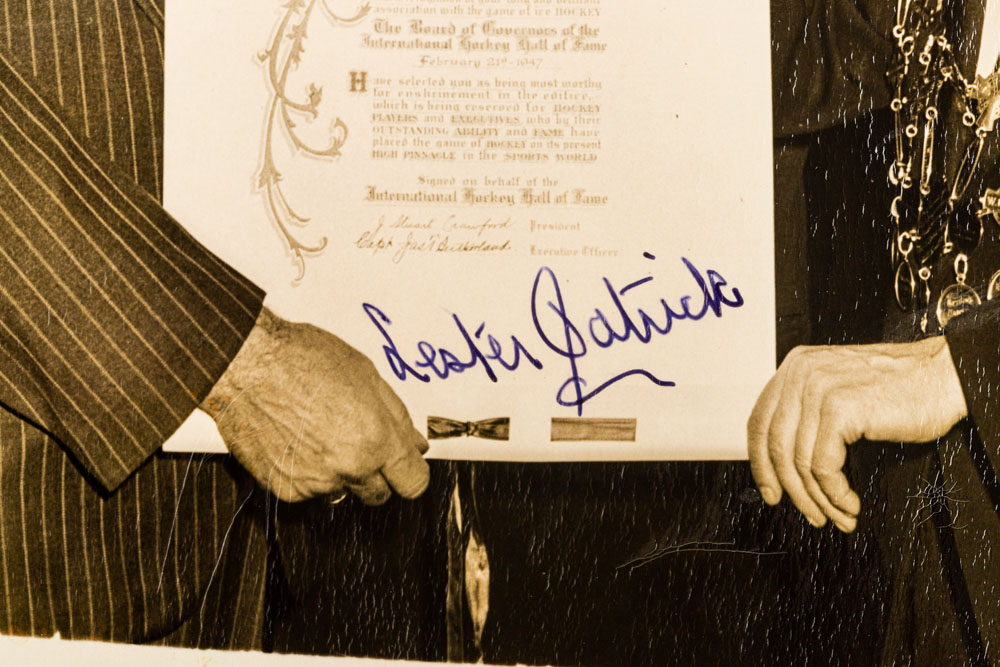 association with the game of ice HOCKEY
The Board of Governors of the
International Hockey Hall of Fame
February 21st 1947
Have selected you as being most worthy
for enshrinement in the edifice,
which is being reserved for HOCKEY
PLAYERS and EXECUTIVES who by their
OUTSTANDING ABILITY and FAME have
placed the game of HOCKEY on its present
HIGH PINNACLE in the SPORTS WORLD
Signed on behalf of the
International Hockey Hall of Fame
J Stuart Crawford President
Capt Jas T Sutherland Executive Officer
Lester Patrick